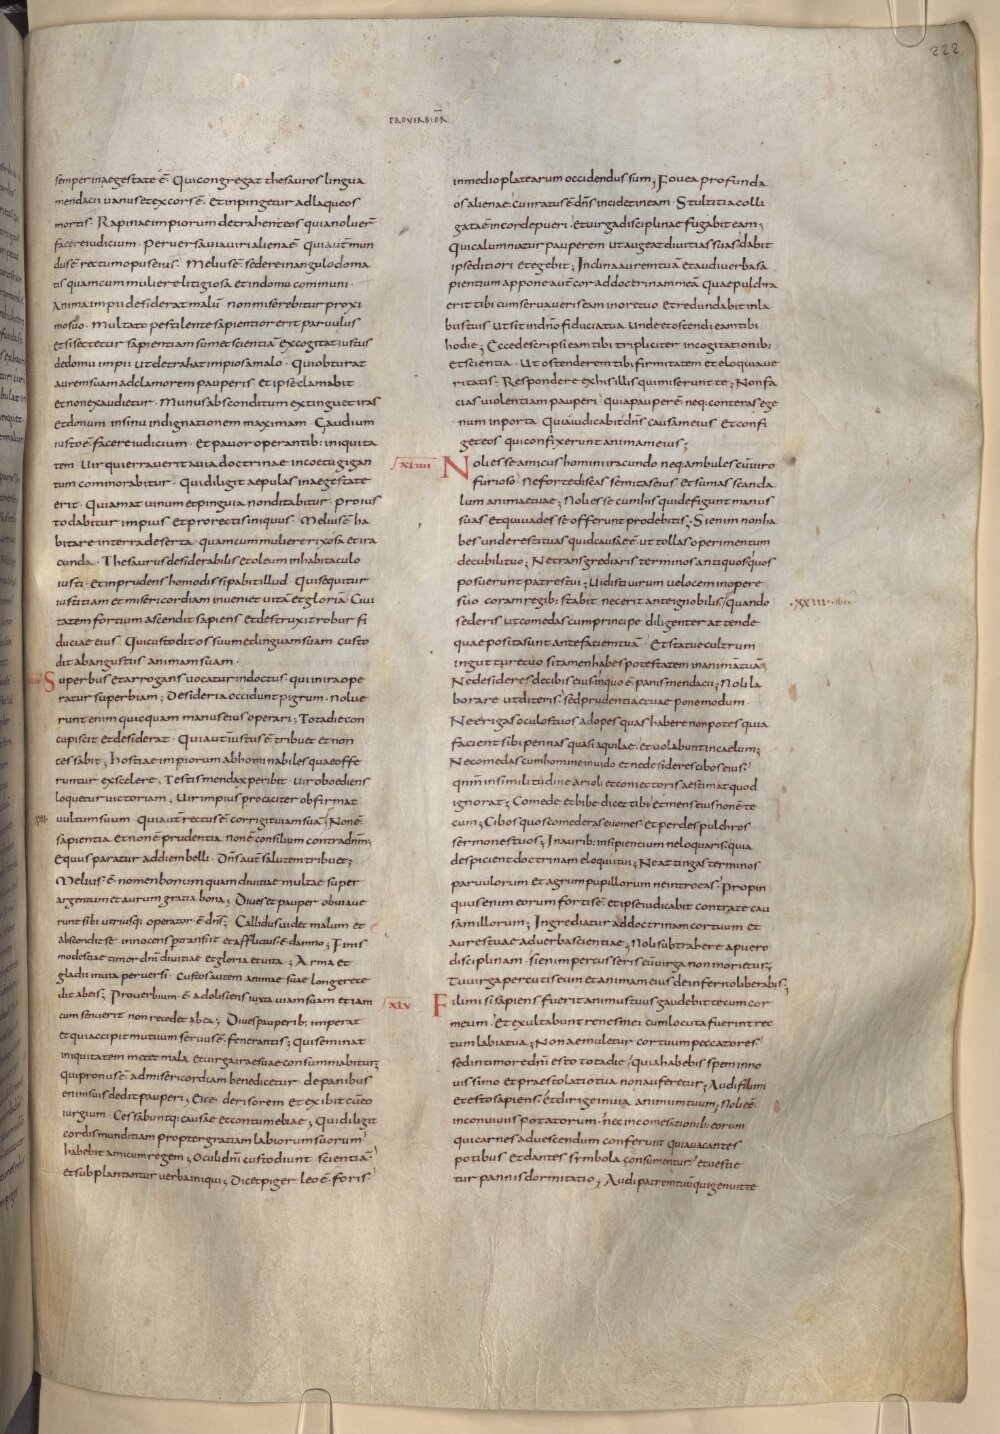 222
PROVERBIOR̄
semper inaegestate ē· Quicongregat thesauros lingua
mendacii uanus etexcors ē· Etinpingetur adlaqueos
mortis· Rapinae impiorum detrahent eos quia noluer̄
facere iudicium· Peruersa uia uiri aliena ē· Qui aut̄ mun
dus ē rectum opus eius· Melius ē sedere inangulo doma
tis quam cum muliere litigiosa et indomu communi·
Anima impii desiderat malū non miserebitur proxi
mo suo· Multato pestilente sapientior erit paruulus
et si sectetur sapientiam sumet scientiā excogitat iustus
de domu impii ut detrahat impios a malo· Qui obturat
aurem suam ad clamorem pauperis et ipse clamabit
et non exaudietur· Munus absconditum extinguet iras
et donum insinu indignationem maximam· Gaudium
iusto ē facere iudicium· Et pauor operantib; iniquita
tem· Uir qui errauerit auia doctrinae in coetu gigan
tum commorabitur· Qui diligit aepulas inaegestate
erit· Qui amat uinum et pinguia non ditabitur· Pro ius
to dabitur impius et pro rectis iniquus· Melius ē ha
bitare interra deserta· quam cum muliere rixosa et ira
cunda· Thesaurus desiderabilis et oleum in habitaculo
iusti· et inprudens homo dissipabit illud· Qui sequitur
iustitiam et misericordiam inueniet uitā et gloriā· Ciui
tatem fortium ascendit sapiens et destruxit robur fi
duciae eius· Qui custodit os suum et linguam suam custo
dit ab angustiis animam suam·
Superbus et arrogans uocatur indoctus qui in ira ope
ratur superbiam; Desideria occidunt pigrum· nolue
runt enim quicquam manus eius operari; Tota die con
cupiscit et desiderat· Qui aut iustus ē tribuet et non
cessabit; hostiae impiorum abhominabiles quae offe
runtur ex scelere; Testis mendax peribit· uir oboediens
loquetur uictoriam; Uir impius procaciter obfirmat
uultum suum· Qui aut̄ rectus ē corrigit uiam suā; Non ē
sapientia et non ē prudentia· non ē consilium contra dn̄m;
Equus paratur ad diem belli· Dn̄s aut̄ salutem tribuet;
Melius ē nomen bonum quam diuitiae multae super
argentum et aurum gratia bona; Diues et pauper obuiaue
runt sibi utriusq; operator ē dn̄s; Callidus uidet malum et
abscondit se· innocens ptransiit et afflictus ē damno; Finis
modestiae timor dn̄i diuitiae et gloria et uita; Arma et
gladii in uia peruersi· Custos autem animae suae longe rece
dit ab eis; Prouerbium ē adoliscens iuxta uiam suam etiam
cum senuerit non recedet ab ea; Diues pauperib; imperat
et qui accipit mutuum seruus ē fenerantis; Qui seminat
iniquitatem metet mala et uirga irae suae consummabitur;
Qui pronus ē ad misericordiam benedicetur· de panibus
enim suis dedit pauperi; Eice derisorem et exibit cū eo
iurgium· Cessabuntq; causae et contumeliae; Qui diligit
cordis munditiam propter gratiam labiorum suorum
habebit amicum regem; Oculi dn̄i custodiunt scientiā
et subplantantur uerba iniqui; Dicet piger leo ē foris
in medio platearum occidendus sum; Fouea profunda
ós alienae· cui iratus ē dn̄s incidet in eam· Stultitia colli
gata ē in corde pueri· et uirga disciplinae fugabit eam;
Qui calumniatur pauperem ut augeat diuitias suas· dabit
ipse ditiori et egebit; Inclina aurem tuā et audi uerba sa
pientium appone aut̄ cor ad doctrinam meā· Quae pulchra
erit tibi cum seruaueris eam in ore tuo et redundabit in la
bus tuis· Ut sit in dn̄o fiducia tua· Unde et ostendi eam tibi
hodie; Ecce descripsi eam tibi tripliciter in cogitationib;
et scientia· Ut ostenderem tibi firmitatem et eloquia ue
ritatis· Respondere ex his illis qui miserunt te; Non fa
cias uiolentiam pauperi quia pauper ē neq; conteras ege
num inporta· Quia iudicabit dn̄s causam eius et confi
get eos qui confixerunt animam eius;
XLIIII Noli esse amicus homini iracundo neq; ambules cū uiro
furioso· Ne forte discas semitas eius et sumas scanda
lum animae tuae; Noli esse cum his qui defigunt manus
suas et qui uades se offerunt pro debitis; Si enim non ha
bes unde restituas quid causae ē ut tollas operimentum
de cubili tuo; Ne transgrediaris terminos antiquos quos
posuerunt patres tui; Uidisti uirum uelocem in opere
suo coram regib; stabit nec erit ante ignobilis; Quando
·XXIII·
sederis ut comedas cum principe diligenter attende
quae posita sunt ante faciem tuā· Et statue cultrum
in gutture tuo si tamen habes potestatem in animā tuā;
Ne desideres de cibis eius in quo ē panis mendacii; Noli la
borare ut diteris· sed prudentiae tuae pone modum·
Ne erigas oculos tuos ad opes quas habere non potes quia
facient sibi pennas quasi aquilae· et uolabunt in caelum;
Ne comedas cum homine inuido et ne desideres cibos eius·
qnm in similitudine arioli et coniectoris aestimat quod
ignorat; Comede et bibe dicet tibi· et mens eius non ē te
cum; Cibos quos comederas euomes· et perdes pulchros
sermones tuos; In aurib; insipientium ne loquaris· quia
despicient doctrinam eloquii tui; Ne attingas terminos
paruulorum et agrum pupillorum ne introeas· Propin
quus enim eorum fortis ē et ipse iudicabit contra te cau
sam illorum; Ingrediatur ad doctrinam cor tuum et
aures tuae ad uerba scientiae; Noli subtrahere a puero
disciplinam· si enim percusseris eū uirga non morietur;
Tu uirga percuties eum et animam eius de inferno liberabis;
XLV Fili mi si sapiens fuerit animus tuus gaudebit tecum cor
meum· Et exultabunt renes mei cum locuta fuerint rec
tum labia tua; Non aemuletur cor tuum peccatores
sed in timore dn̄i esto tota die; Quia habebis spem in no
uissimo et praestolatio tua non auferetur; Audi fili mi
et esto sapiens· et dirige in uia animum tuum; Noli eē
in conuiuiis potatorum· nec in comesationib; eorum
qui carnes ad uescendum conferunt quia uacantes
potibus et dantes symbola consumentur· et uestie
tur pannis dormitatio; Audi patrem tuū qui genuit te